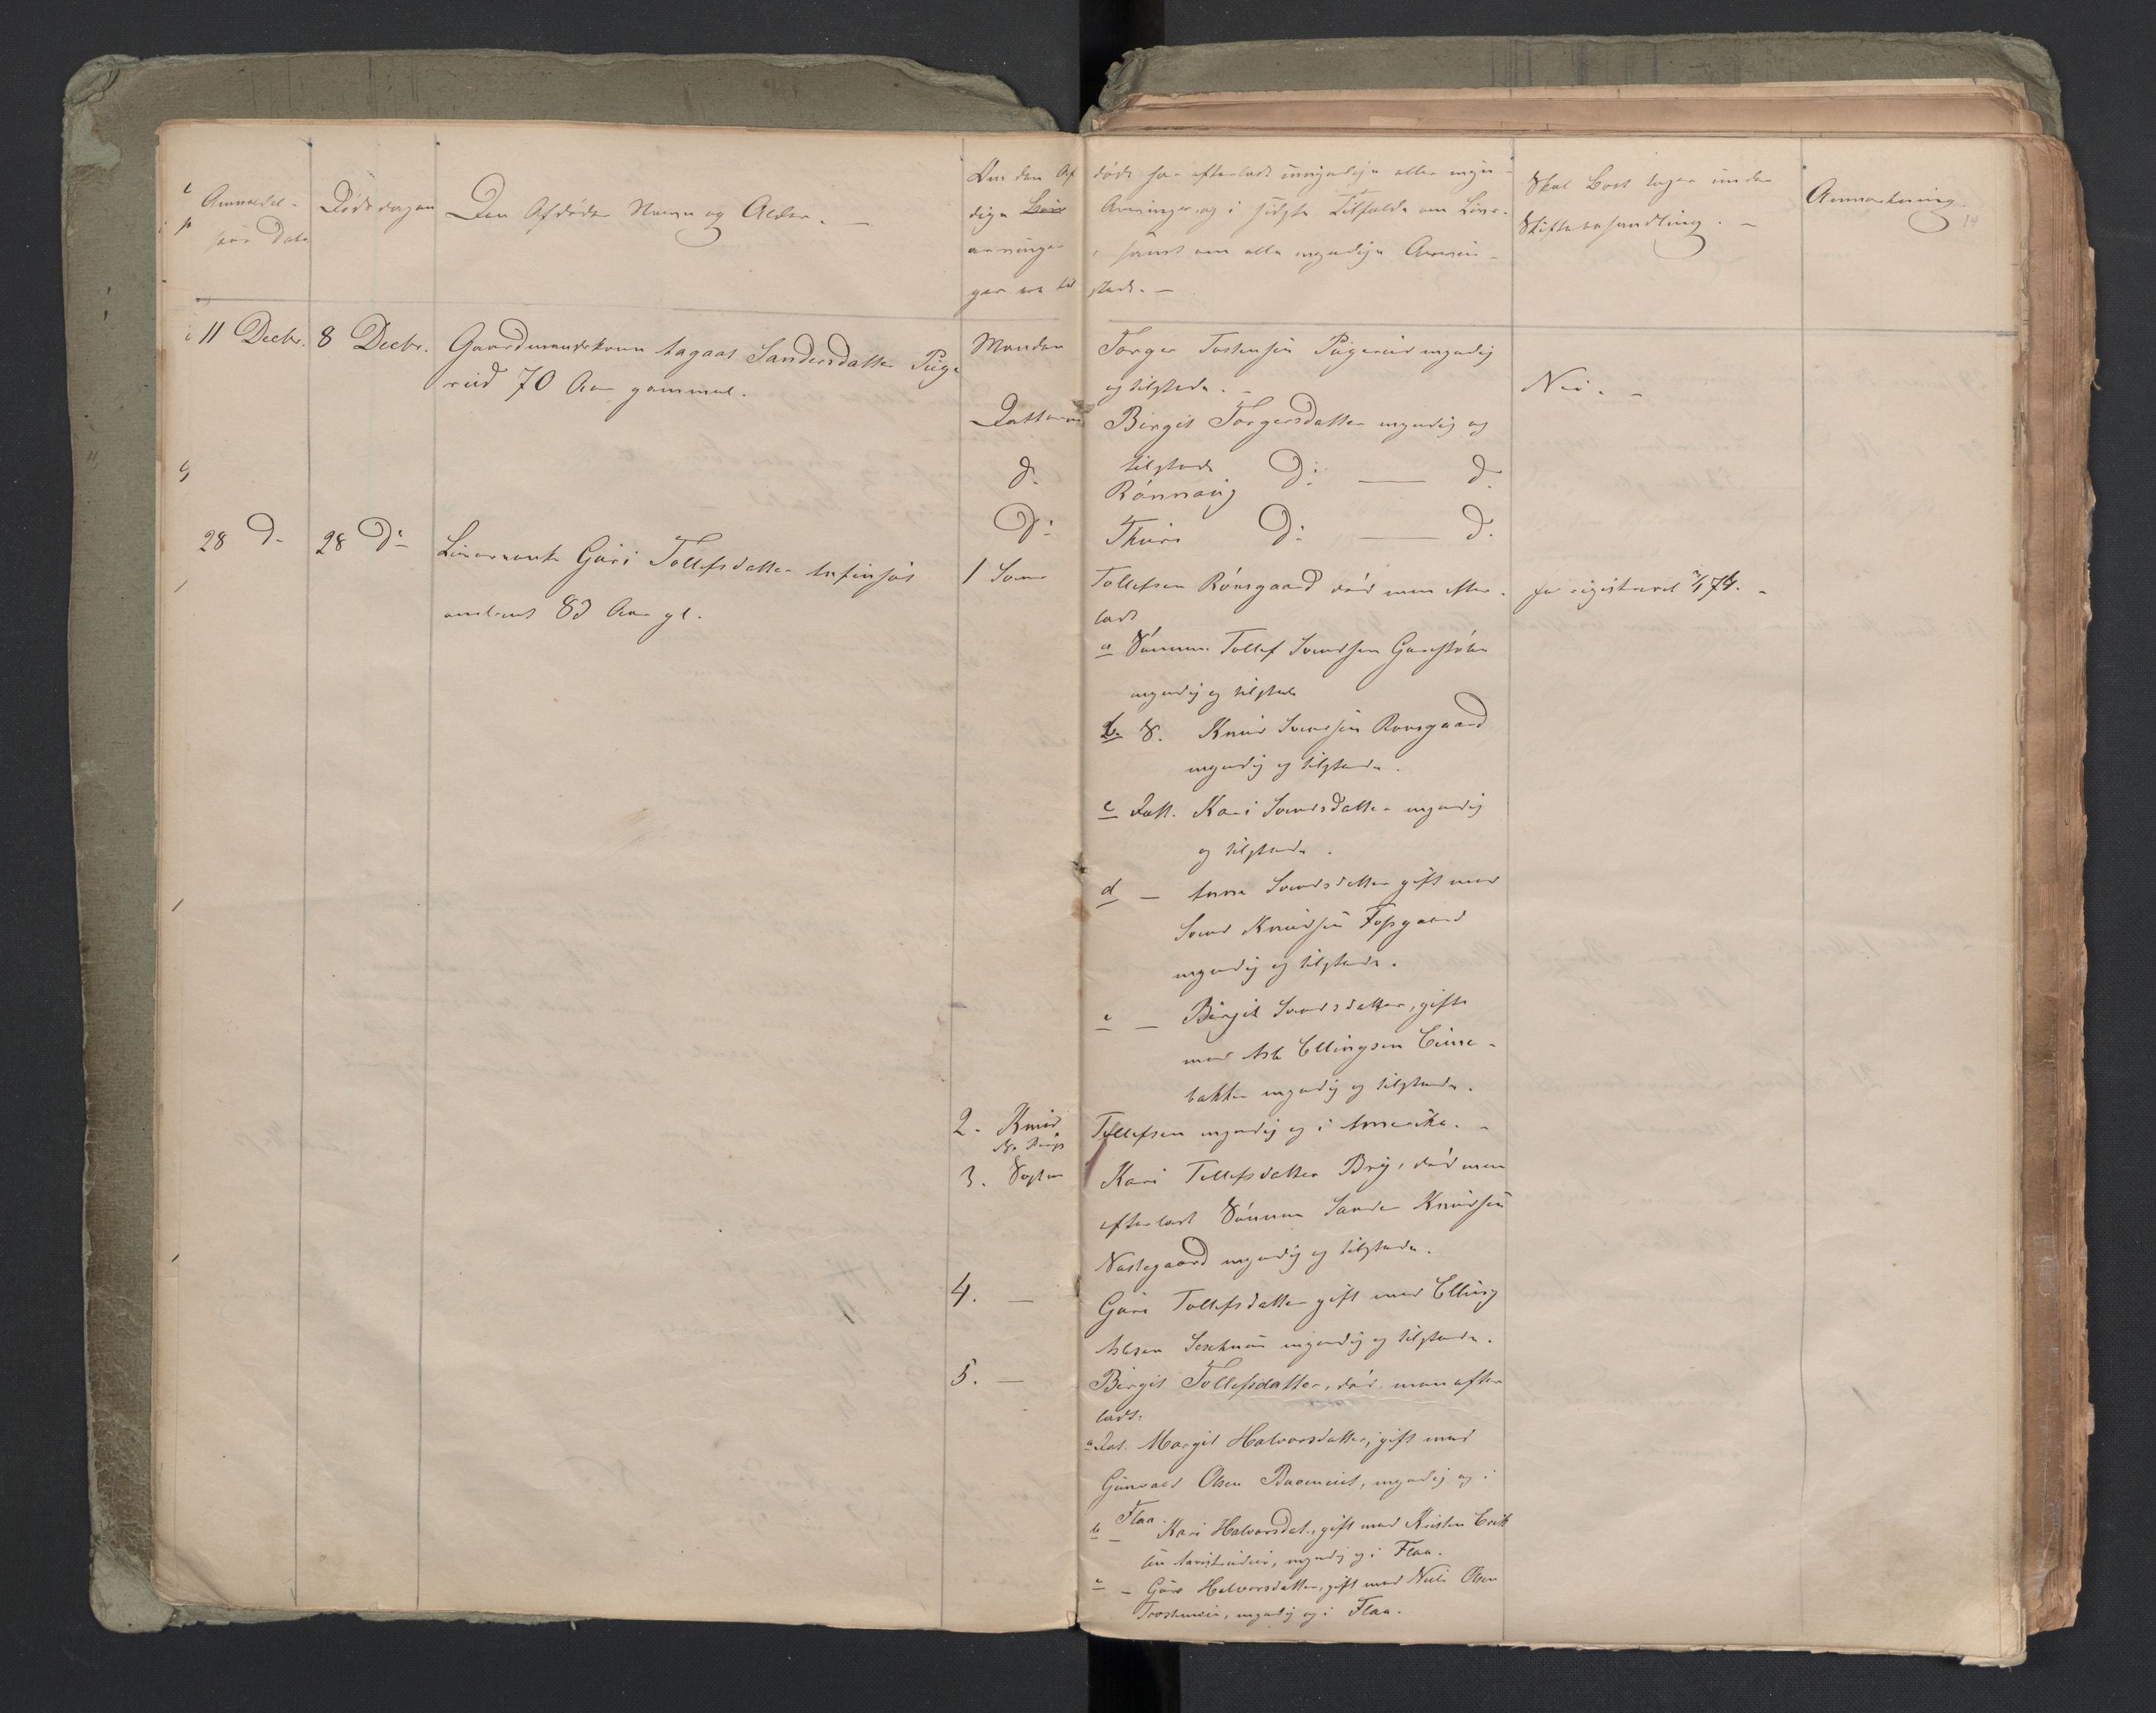 Anmeldel-
sens Dato
Dødsdagen
Den Afdødes Navn og Alder. —
Om den Af
døde har efterladt umyndige eller myn-
dige Livs
Arvinger, og i sidste Tilfælde om Livs-
arvinger
samt om alle myndige Arvin-
ger ere til
stede. —
Skal Boet tages under
Skiftebehandling. —
Anmærkning.
14
11 Decbr.
8 Decbr.
Gaardmandskone Aagaat Sandersdatter
rud 70 Aar gammel.
Manden
Torger Torstensen myndig
og tilstede. —
Nei. —
Datteren
Birgit Torgersdatter myndig og
tilstede
d.
Rønnaug D: — d.
D:
Thuri D: — d.
28 D-
28 D:
Guri Tollefsdatter
omtrent 83 Aar gl.
1 Søn
Tollefsen Rønsgaard død men efter-
ladt
a Sønnen Tollef Svendsen
myndig og tilstede
b. S. Knud Svendsen Rønsgaard
myndig og tilstede.
c Datt. Kari Svendsdatter myndig
og tilstede.
d — Anne Svendsdatter gift med
Svend Knudsen
myndig og tilstede.
e — Birgit Svendsdatter, gift
med Asle Ellingsen
bakken myndig og tilstede.
2. Knud
Tollefsen myndig og i Amerika. —
3. Datter
Kari Tollefsdatter død men
efterladt Sønnen Sander Knudsen
Næstegaard myndig og tilstede.
4. —
Guri Tollefsdatter gift med Elling
Aslesen myndig og tilstede.
5. —
Birgit Tollefsdatter, død men efter
ladt:
a Dat. Margit Halvorsdatter, gift med
Gunvald Olsen myndig og i
Flaa.
b — Kari Halvorsdat., gift med Kristen Erik
sen myndig og i Flaa.
c — Guro Halvorsdatter, gift med Nils Olsen
myndig og i Flaa.